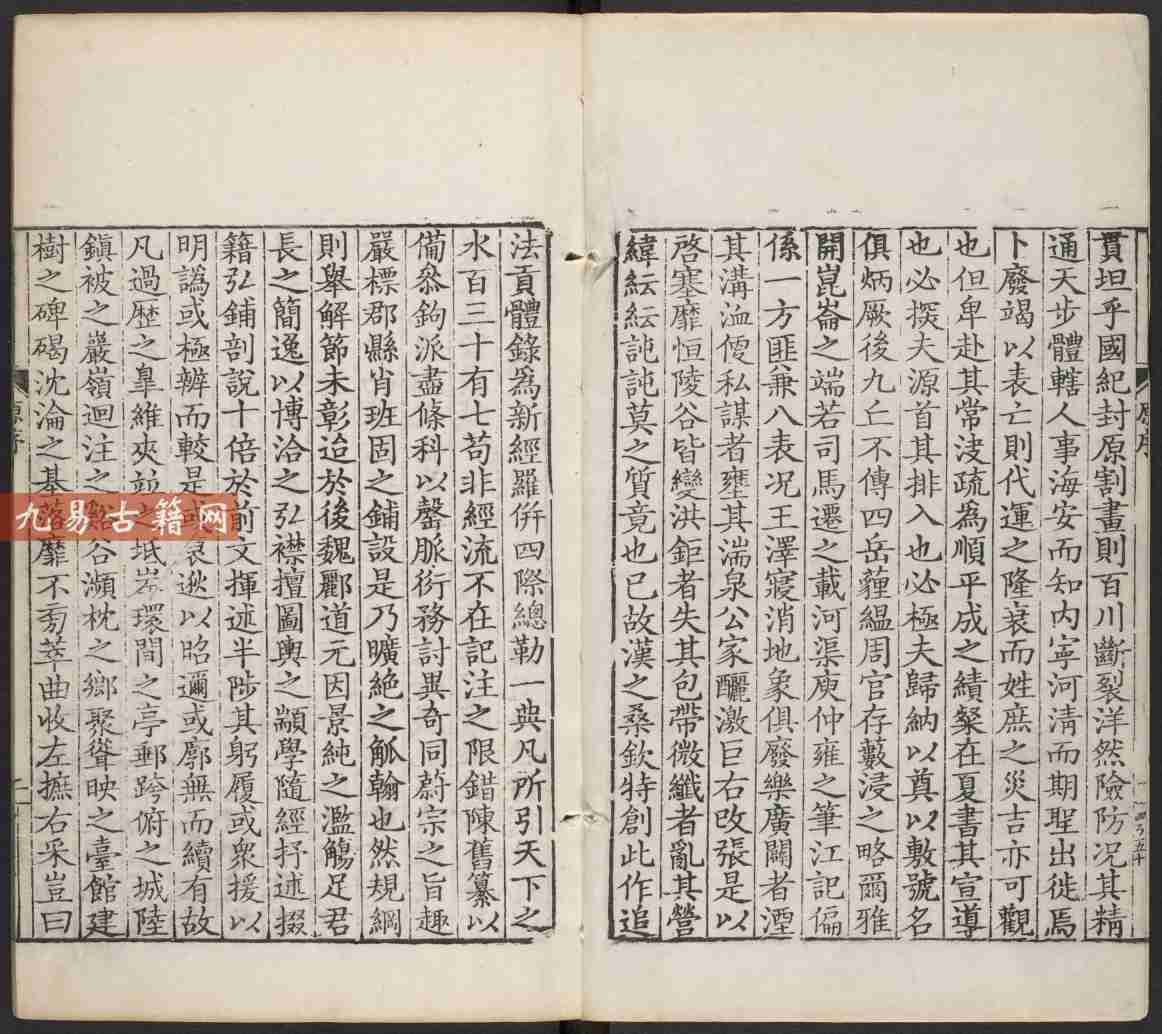 貫坦乎國紀封原割畫則百川斷裂洋然險防况其精
通天步體轄人事海安而知内寧河清而期聖出徙焉
卜廢竭以表亡則代運之隆衰而姓庶之災吉亦可觀
也但卑赴其常浚疏為順平成之績粲在夏書其宣導
也必探夫源首其排入也必極夫歸納以奠以敷號名
俱炳厥後九丘不傳四岳薶緼周官存藪浸之略爾雅
開崑崙之端若司馬遷之載河渠庾仲雍之筆江記偏
係一方匪兼八表况王澤寢消地象俱廢樂廣闢者湮
其溝洫便私謀者壅其湍泉公家釃激巨右改張是以
啓塞靡恒陵谷皆變洪鉅者失其包帶微纖者亂其營
緯紜紜訰訰莫之質竟也已故漢之桑欽特創此作追
法貢體錄爲新經羅併四際總勒一典凡所引天下之
水百三十有七苟非經流不在記注之限錯陳舊纂以
備叅鉤派盡條科以罄脈衍務討異奇同蔚宗之旨趣
嚴標郡縣肖班固之鋪設是乃曠絶之觚翰也然規綱
則舉解節未彰迨於後魏酈道元因景純之濫觴足君
長之簡逸以博洽之弘襟擅圖輿之顓學隨經抒述掇
籍弘鋪剖說十倍於前文揮述半陟其躬履或衆援以
明譌或極辨而較是或哀逖以昭邇或廓無而續有故
凡過歷之臯維夾竝之坻岸環間之亭郵跨俯之城陸
鎭被之巖嶺迴注之谿谷瀕枕之鄉聚聳映之臺館建
樹之碑碣沈淪之基落靡不旁萃曲收左摭右采豈曰
原序
原序
九易古籍网